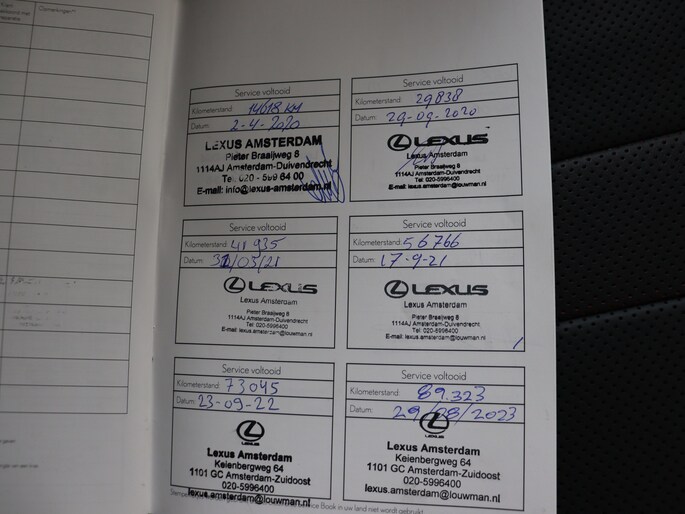 Opmerkingen**
Service voltooid
Kilometerstand: 14618 KM
Datum: 2-4-2020
LEXUS AMSTERDAM
Pieter Braaijweg 8
1114AJ Amsterdam-Duivendrecht
Tel: 020 - 599 64 00
E-mail: info@lexus-amsterdam.nl
Service voltooid
Kilometerstand: 29838
Datum: 29-09-2020
LEXUS
Lexus Amsterdam
Pieter Braaijweg 8
1114AJ Amsterdam-Duivendrecht
Tel: 020-5996400
E-mail: lexus.amsterdam@louwman.nl
Service voltooid
Kilometerstand: 41935
Datum: 31/03/21
LEXUS
Lexus Amsterdam
Pieter Braaijweg 8
1114AJ Amsterdam-Duivendrecht
Tel: 020-5996400
E-mail: lexus.amsterdam@louwman.nl
Service voltooid
Kilometerstand: 56766
Datum: 17-9-21
LEXUS
Lexus Amsterdam
Pieter Braaijweg 8
1114AJ Amsterdam-Duivendrecht
Tel: 020-5996400
E-mail: lexus.amsterdam@louwman.nl
Service voltooid
Kilometerstand: 73045
Datum: 23-09-22
LEXUS
Lexus Amsterdam
Keienbergweg 64
1101 GC Amsterdam-Zuidoost
020-5996400
lexus.amsterdam@louwman.nl
Service voltooid
Kilometerstand: 89.323
Datum: 29/08/2023
LEXUS
Lexus Amsterdam
Keienbergweg 64
1101 GC Amsterdam-Zuidoost
020-5996400
lexus.amsterdam@louwman.nl
Service Book in uw land niet wordt gebruikt.